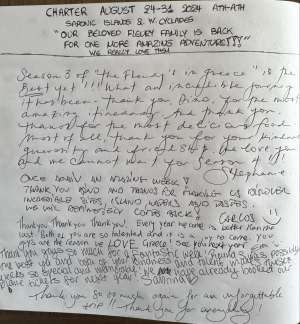 CHARTER AUGUST 24-31 2024 ATH-ATH
SARONIC ISLANDS & W. CYCLADES
"OUR BELOVED FLEURY FAMILY IS BACK
FOR ONE MORE AMAZING ADVENTURE!!!"
WE REALLY LOVE THEM
Season 3 of "the Fleury's in greece" is the
Best yet!!! What an incredible journey
it has been. Thank you, Dino, for the most
amazing itinerary, and thank you
for the most delicious food
Most of all, thank you for your kindness
generosity and friendship. We love you
and we cannot wait for Season 4!!
Stephanie
ONCE AGAIN AN AMAZING WEEK!
THANK YOU DINO AND THANOS FOR MAKING US DISCOVER
INCREDIBLE SITES, ISLAND VIEWS AND TASTES.
WE WILL DEFINITELY COME BACK!
CARLOS
Thank you Thank you Thank you! Every year we come is better than the
last. Both you are so talented and it is a joy to come. You
guys are the reason we LOVE Greece! See you next year
Thank you guys so much for a fantastic week!
the best of both of your kindness and talent make these
weeks so special and wonderful! We have already booked our
plane tickets for next year! Sabrina
Thank you so much again for an unforgettable
trip!! Thank you for everything!